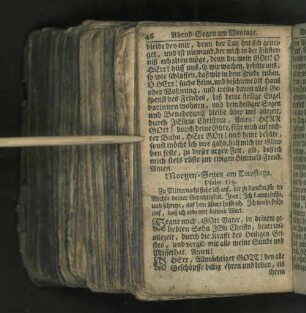 46 Abend-Segen am Montage.
bleibe bey mir, denn der Tag hat sich geneiget,
und ist niemand, der mich in der Finsterniß
erhalten möge, denn du, mein GOtt! O
HErr! hilff uns, so wir wachen, behüte uns,
so wir schlaffen, daß wir in dem Friede ruhen.
O HErr! suche heim, und besehe dis Haus
oder Wohnung, und treibe davon alles Gespenst
des Feindes, laß deine heilige Engel
darinnen wohnen, und dein heiliger Segen
und Benedeyung bleibe über uns allezeit,
durch JEsum Christum, Amen! HERR
GOtt! durch deine Güte, führ mich auf rechter
Bahn, HErr GOtt! mich behüt dafür,
sonst möcht ich irre gahn, halt mich im Glauben
feste, zu dieser argen Zeit, gib, daß ich
mich stets rüste zur ewigen Himmels-Freud.
Amen.
Morgen-Segen am Dienstage.
Psalm 119.
Zu Mitternacht stehe ich auf, dir zu dancken für die
Rechte deiner Gerechtigkeit. Item: Ich komme frühe,
und schreye, auf dein Wort hoffe ich. Ich wache frühe
auf, daß ich rede von deinem Wort.
Segne mich, GOtt Vater, in deinem geliebten
Sohn JEsu Christo, heut und
allezeit, durch die Krafft des Heiligen Geistes,
und vergib mir alle meine Sünde und
Missethat. Amen!
O HErr, Allmächtiger GOTT! den alle
Geschöpffe billig ehren und loben, als
ihren